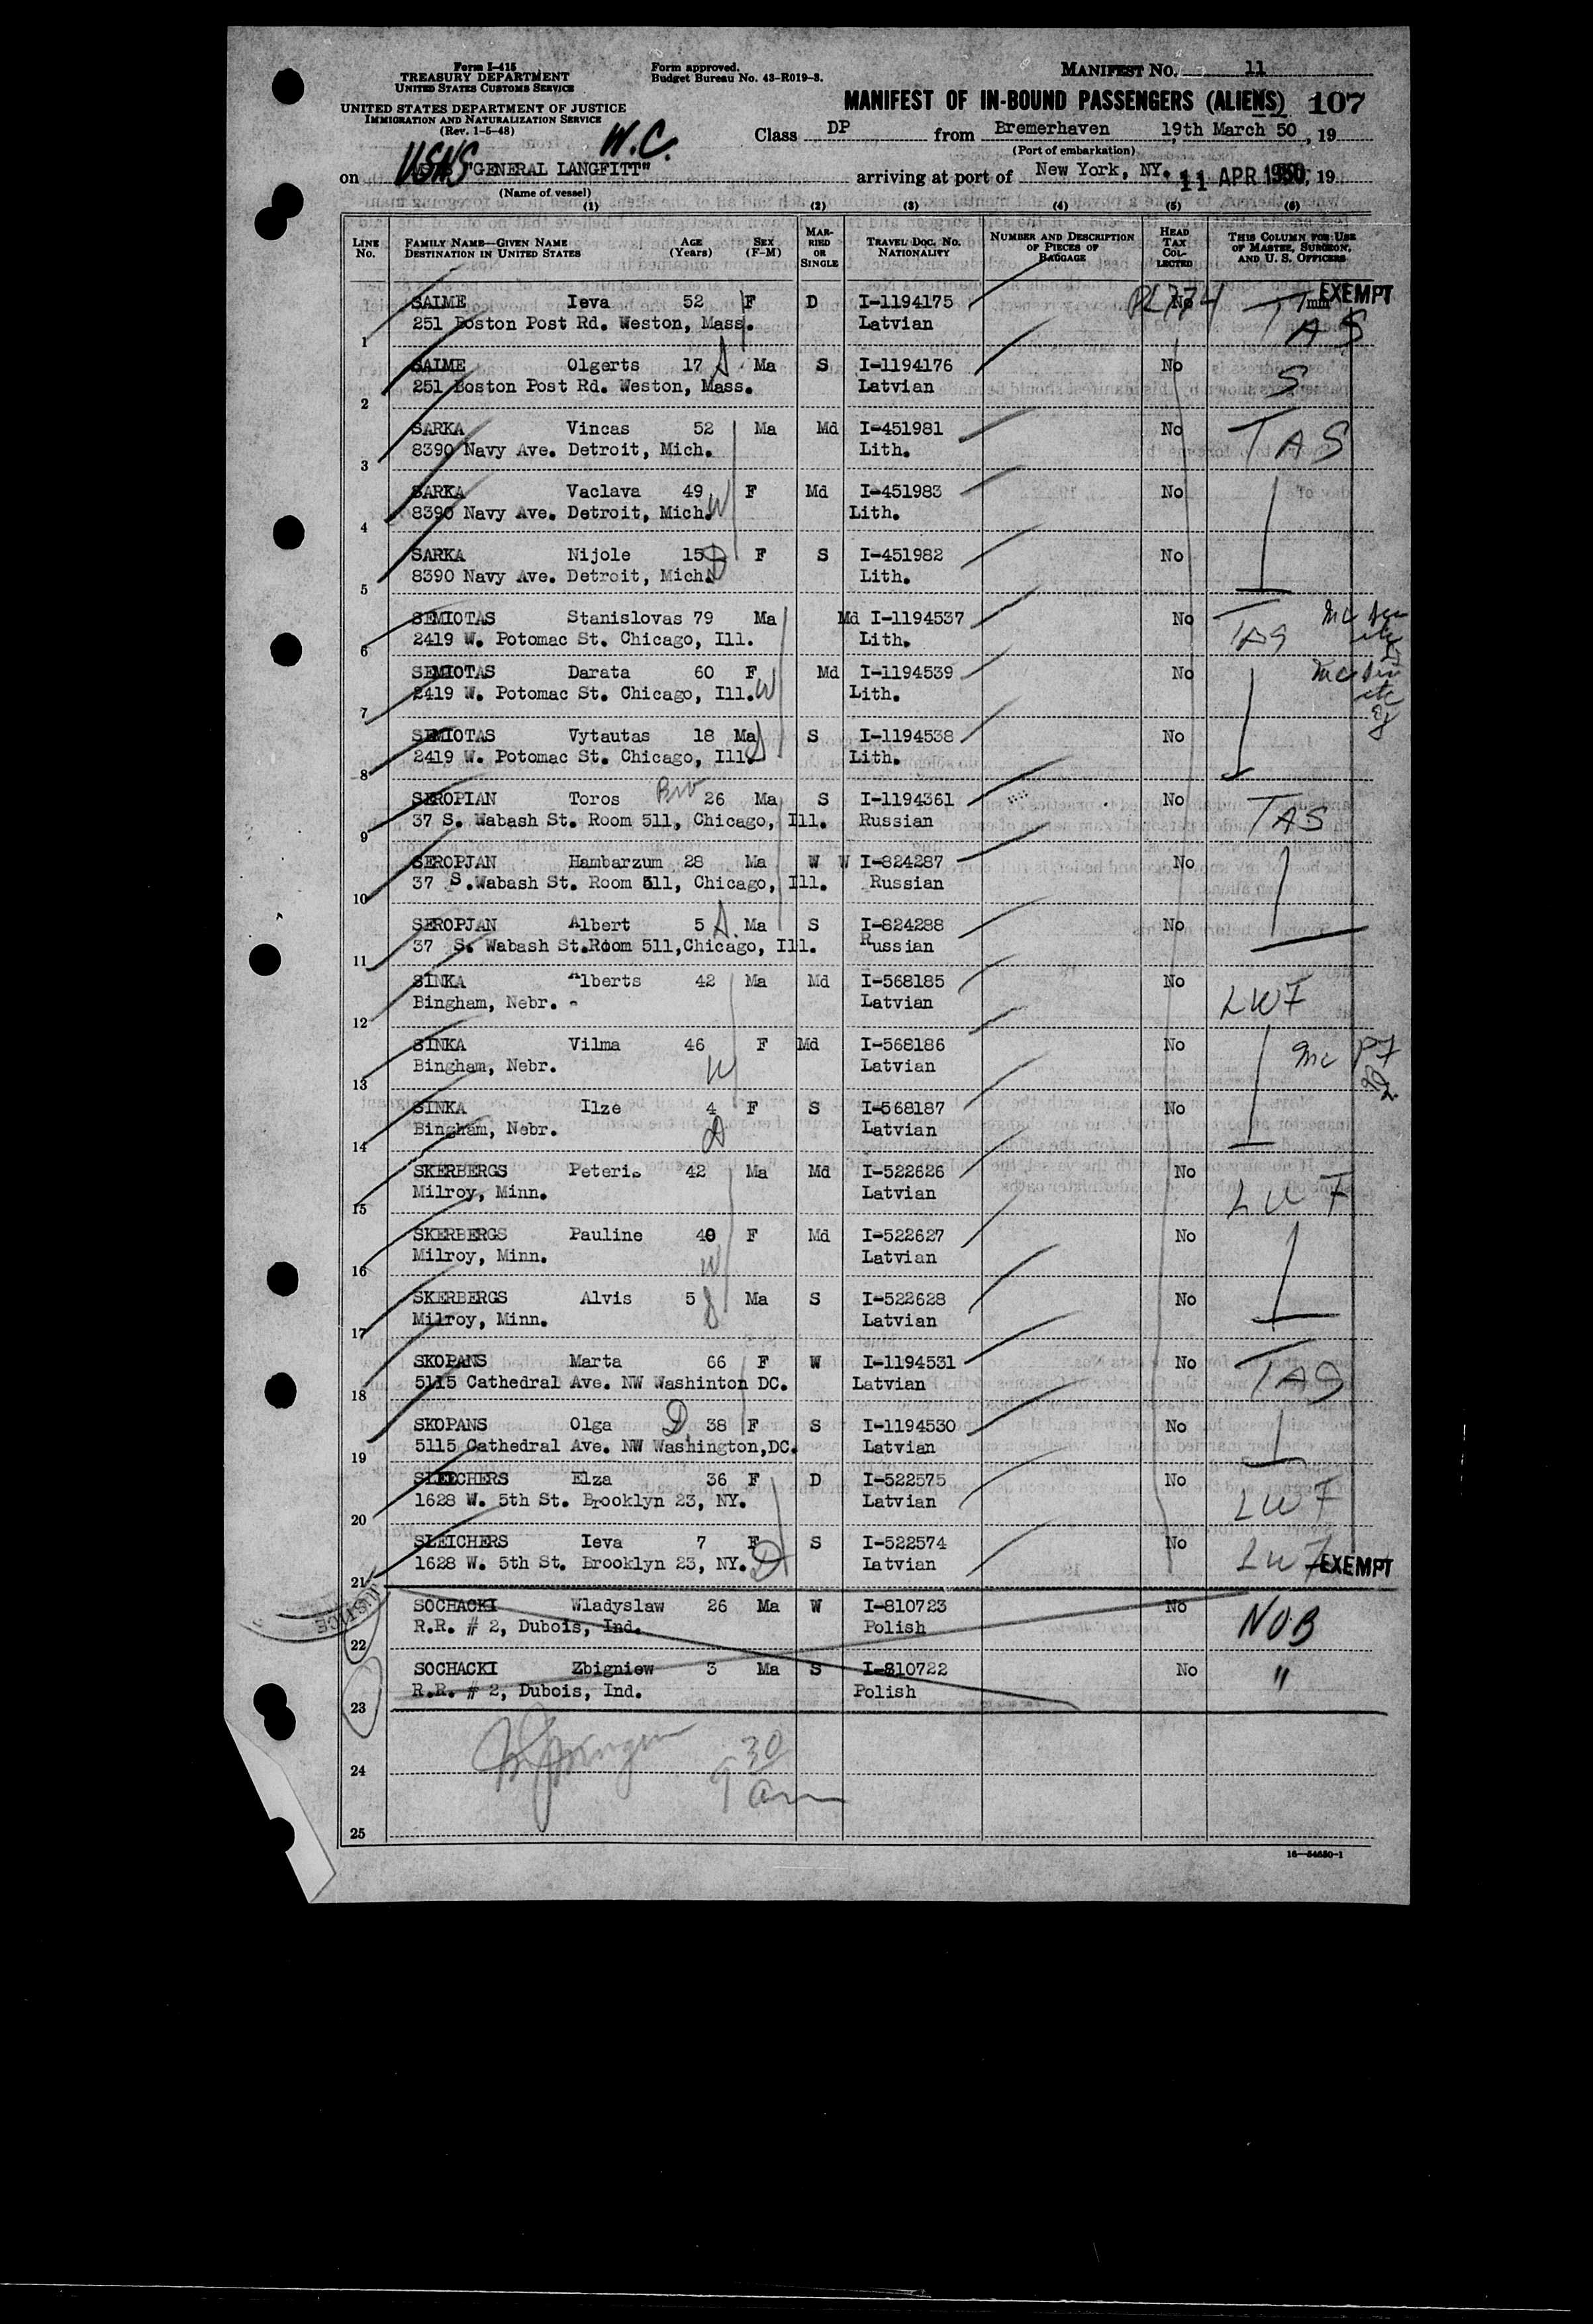 Form I-415
TREASURY DEPARTMENT
UNITED STATES CUSTOMS SERVICE
UNITED STATES DEPARTMENT OF JUSTICE
IMMIGRATION AND NATURALIZATION SERVICE
(Rev. 1-5-48)
Form approved.
Budget Bureau No. 43-R019-3.
MANIFEST NO. 11
MANIFEST OF IN-BOUND PASSENGERS (ALIENS) 107
W.C.
Class DP from Bremerhaven 19th March 50, 19
(Port of embarkation)
on USNS "GENERAL LANGFITT" arriving at port of New York, NY. 11 APR 1950, 19
(Name of vessel)
(1) (2) (3) (4) (5) (6)
LINE NO. FAMILY NAME—GIVEN NAME DESTINATION IN UNITED STATES AGE (YEARS) SEX (F-M) MARRIED OR SINGLE TRAVEL DOC. NO. NATIONALITY NUMBER AND DESCRIPTION OF PIECES OF BAGGAGE HEAD TAX COLLECTED THIS COLUMN FOR USE OF MASTER, SURGEON, AND U. S. OFFICERS
SAIME Ieva 52 F D I-1194175 PL 774 No EXEMPT
1 251 Boston Post Rd. Weston, Mass. Latvian TAS
SAIME Olgerts 17 Ma S I-1194176 No S
2 251 Boston Post Rd. Weston, Mass. Latvian
SARKA Vincas 52 Ma Md I-451981 No TAS
3 8390 Navy Ave. Detroit, Mich. Lith.
SARKA Vaclava 49 F Md I-451983 No
4 8390 Navy Ave. Detroit, Mich. W Lith.
SARKA Nijole 15 D F S I-451982 No
5 8390 Navy Ave. Detroit, Mich. Lith.
SEMIOTAS Stanislovas 79 Ma Md I-1194537 No TAS
6 2419 W. Potomac St. Chicago, Ill. Lith.
SEMIOTAS Darata 60 F Md I-1194539 No
7 2419 W. Potomac St. Chicago, Ill. W Lith.
SEMIOTAS Vytautas 18 Ma S I-1194538 No
8 2419 W. Potomac St. Chicago, Ill. Lith.
SEROPIAN Toros 26 Ma S I-1194361 No TAS
9 37 S. Wabash St. Room 511, Chicago, Ill. Russian
SEROPJAN Hambarzum 28 Ma W W I-824287 No
10 37 S.Wabash St. Room 511, Chicago, Ill. Russian
SEROPJAN Albert 5 Ma S I-824288 No
11 37 S. Wabash St.Room 511,Chicago, Ill. Russian
SINKA Alberts 42 Ma Md I-568185 No
12 Bingham, Nebr. Latvian LWF
SINKA Vilma 46 F Md I-568186 No
13 Bingham, Nebr. W Latvian
SINKA Ilze 4 F S I-568187 No
14 Bingham, Nebr. D Latvian
SKERBERGS Peteris 42 Ma Md I-522626 No
15 Milroy, Minn. Latvian LWF
SKERBERGS Pauline 40 F Md I-522627 No
16 Milroy, Minn. W Latvian
SKERBERGS Alvis 5 Ma S I-522628 No
17 Milroy, Minn. Latvian
SKOPANS Marta 66 F W I-1194531 No TAS
18 5115 Cathedral Ave. NW Washinton DC. Latvian
SKOPANS Olga D 38 F S I-1194530 No
19 5115 Cathedral Ave. NW Washington,DC. Latvian
SLEICHERS Elza 36 F D I-522575 No LWF
20 1628 W. 5th St. Brooklyn 23, NY. Latvian
SLEICHERS Ieva 7 F S I-522574 No LWF EXEMPT
21 1628 W. 5th St. Brooklyn 23, NY. D Latvian
SOCHACKI Wladyslaw 26 Ma W I-810723 No NOB
22 R.R. # 2, Dubois, Ind. Polish
SOCHACKI Zbigniew 3 Ma S I-810722 No "
23 R.R. # 2, Dubois, Ind. Polish
24 9 30 am
25
16—54650-1